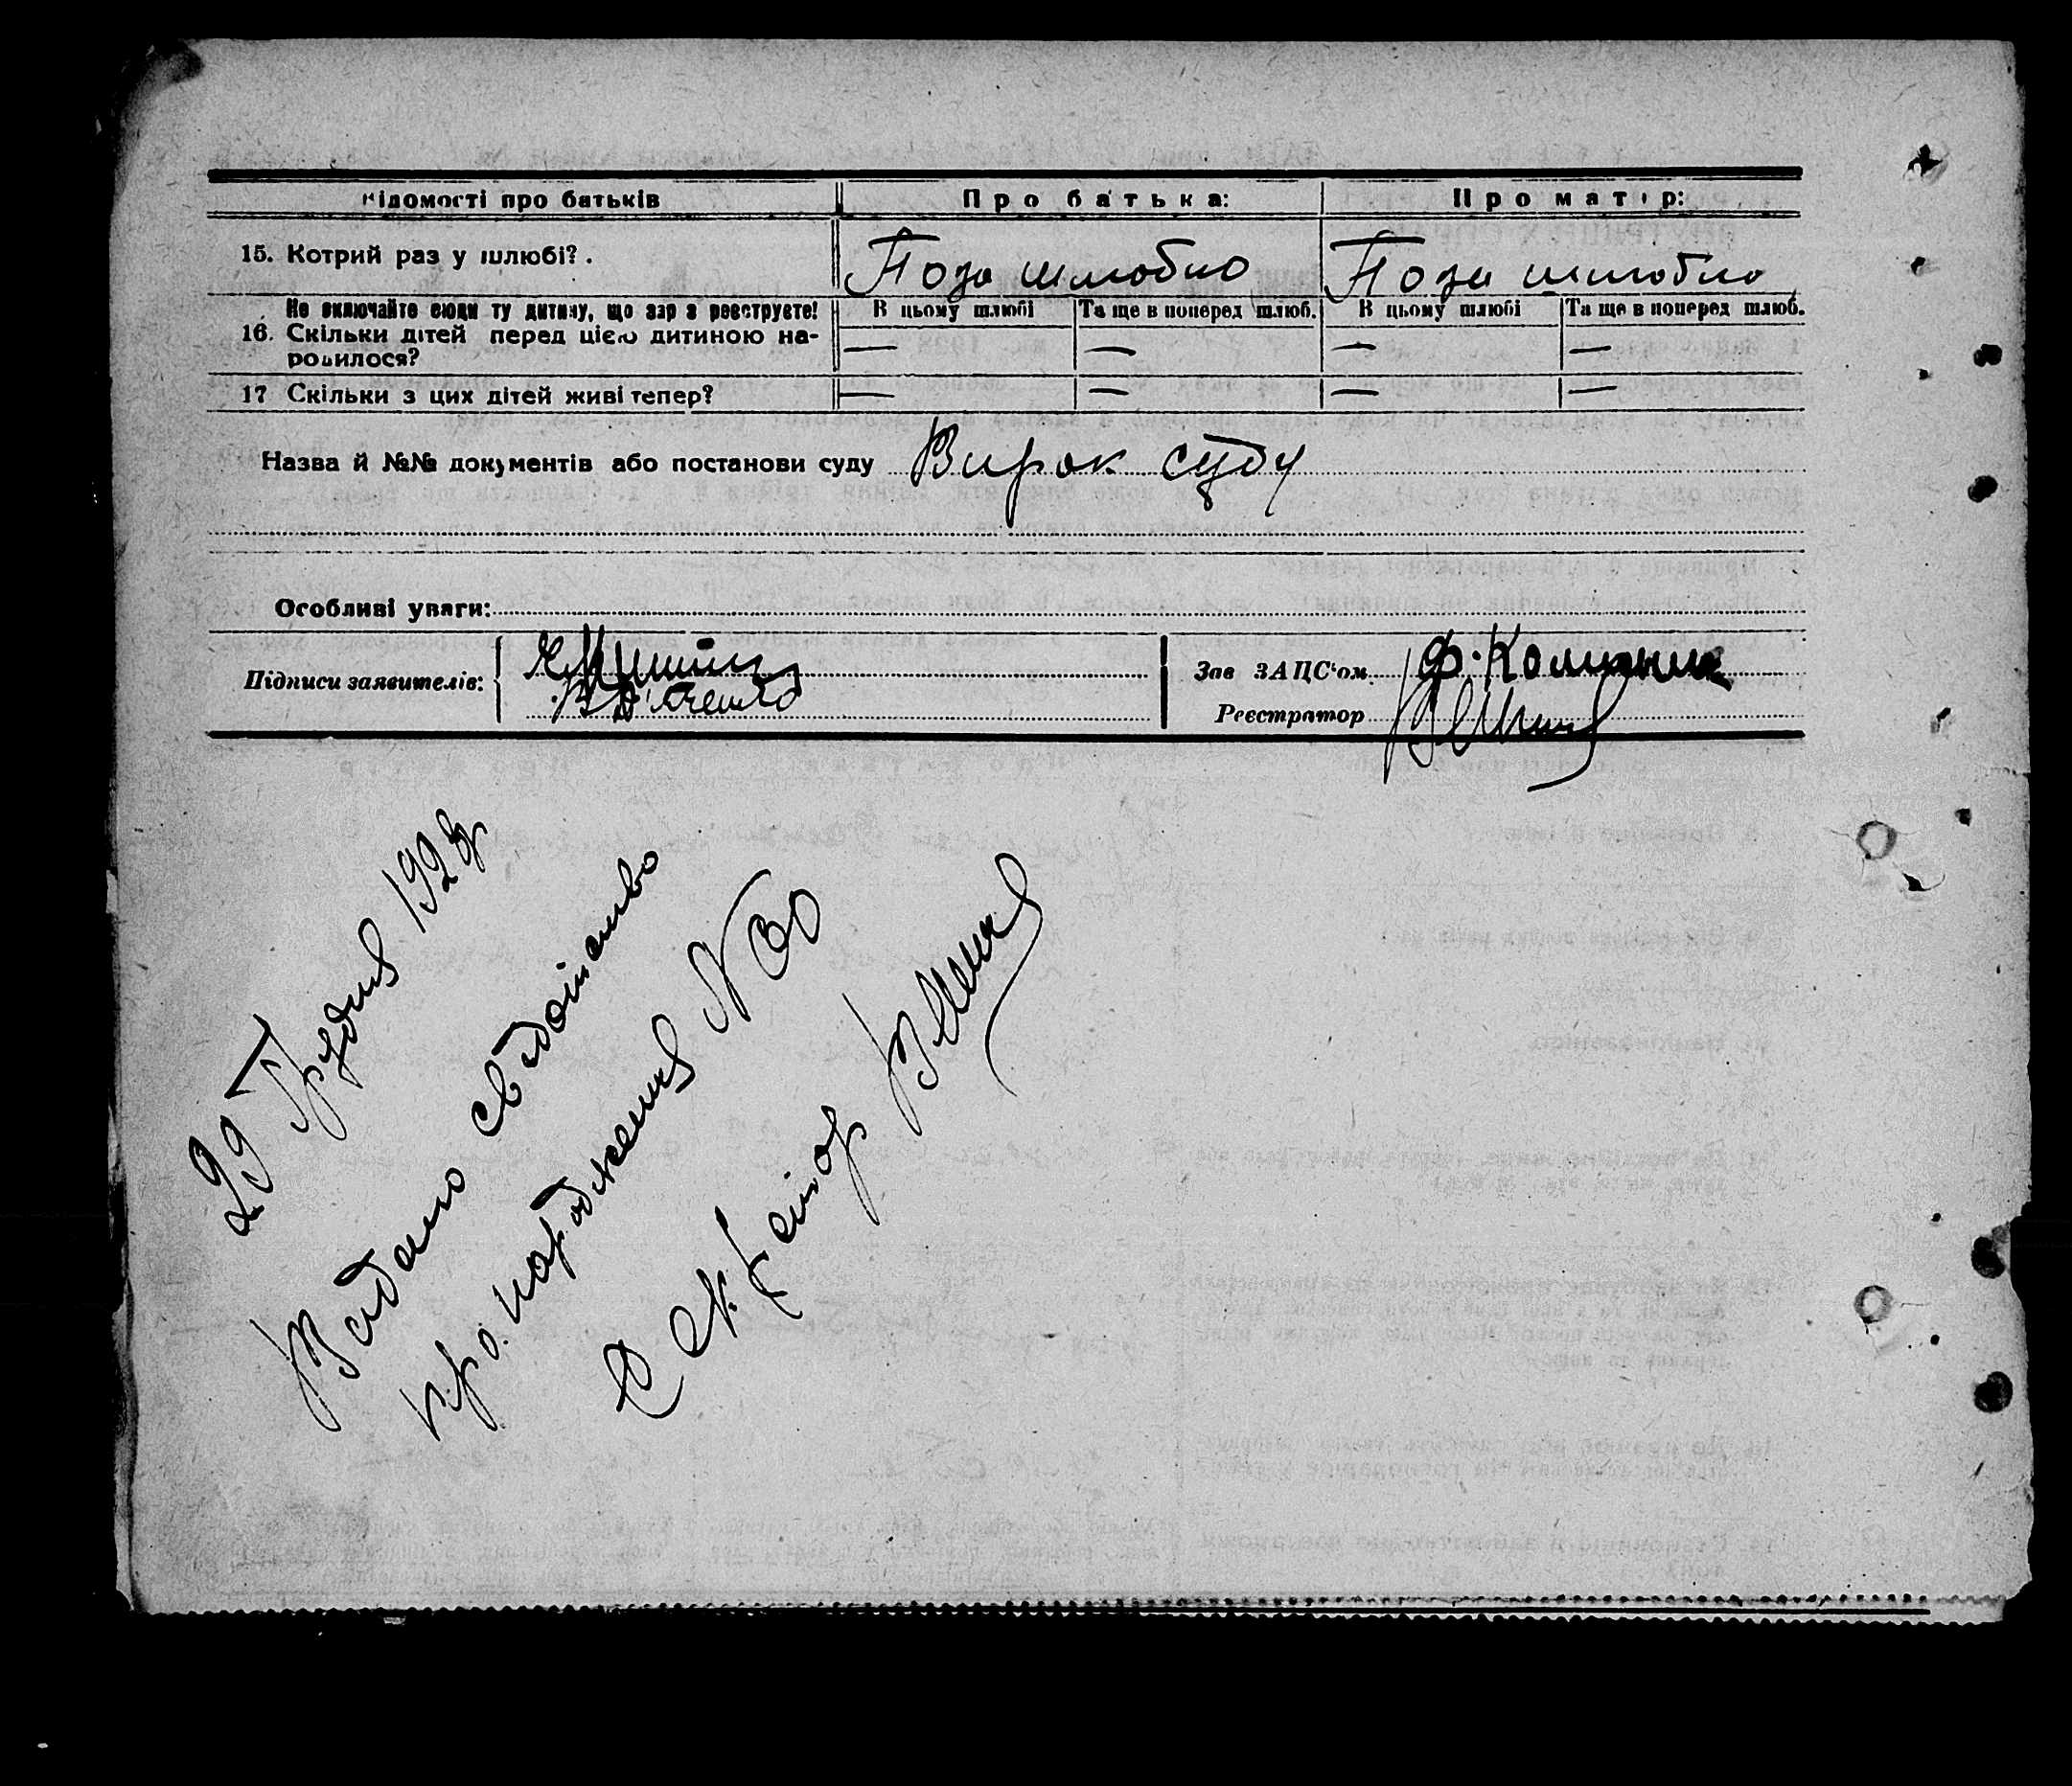 Відомості про батьків Про батька: Про матір:
15. Котрий раз у шлюбі? . Поза шлюбно Поза шлюбно
Не включайте сюди ту дитину, що зар з реєструєте! В цьому шлюбі Та ще в поперед шлюб. В цьому шлюбі Та ще в поперед шлюб.
16. Скільки дітей перед цією дитиною на- — — — —
родилося?
17 Скільки з цих дітей живі тепер? — — — —
Назва й №№ документів або постанови суду Вирок суду
Особливі уваги:
Підписи заявителів:
Зав ЗАЦС'ом Ф. Колизник
Реєстратор
29 Грудня 1928р
Видано свідоцтво
про народження N 30
Секретор